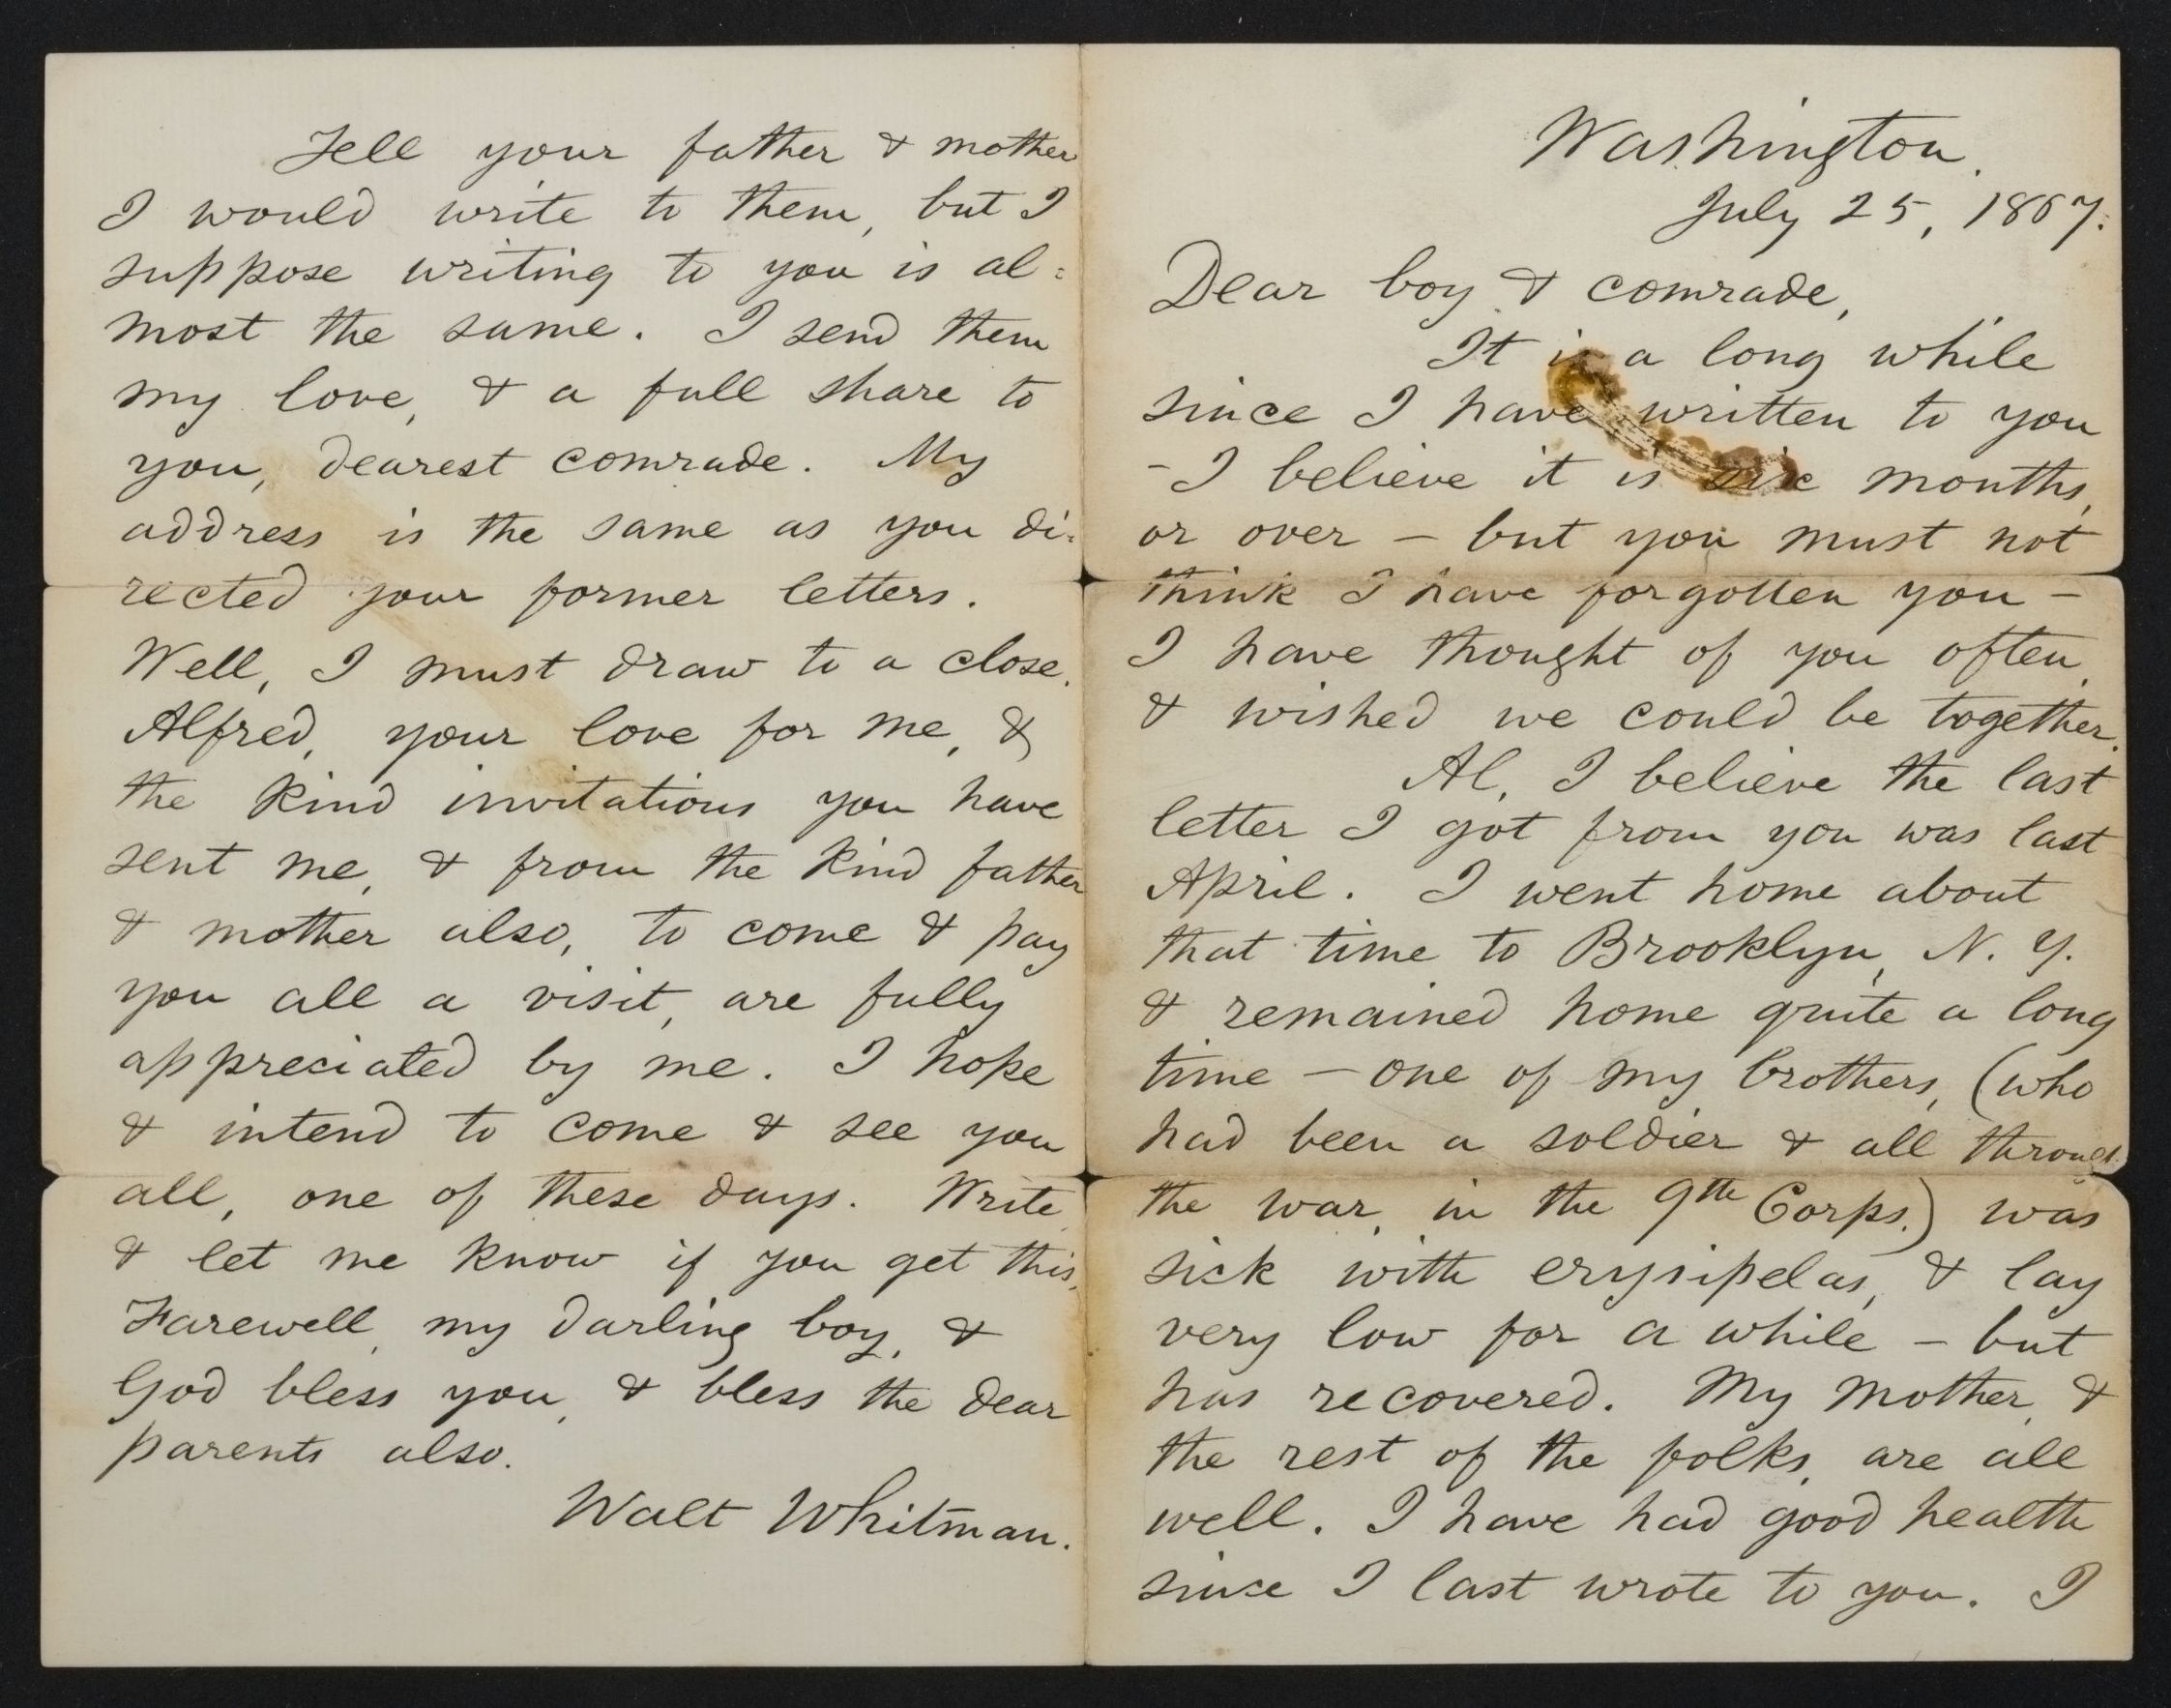 Washington,
July 25, 1867.
Dear boy & comrade,
It is a long while
since I have written to you
- I believe it is six months,
or over – but you must not
think I have forgotten you –
I have thought of you often,
& wished we could be together.
Al, I believe the last
letter I got from you was last
April. I went home about
that time to Brooklyn, N. Y.
& remained home quite a long
time – one of my brothers, (who
had been a soldier & all through
the war, in the 9th Corps,) was
sick with erysipelas, & lay
very low for a while – but
has recovered. My mother, &
the rest of the folks, are all
well. I have had good health
since I last wrote to you. I
Tell your father & mother
I would write to them, but I
suppose writing to you is al=
most the same. I send them
my love, & a full share to
you, dearest comrade. My
address is the same as you di-
rected your former letters.
Well, I must draw to a close.
Alfred, your love for me, &
the kind invitations you have
sent me, & from the kind father
& mother also, to come & pay
you all a visit, are fully
appreciated by me. I hope
& intend to come & see you
all, one of these days. Write,
& let me know if you get this.
Farewell, my darling boy, &
God bless you, & bless the dear
parents also.
Walt Whitman.